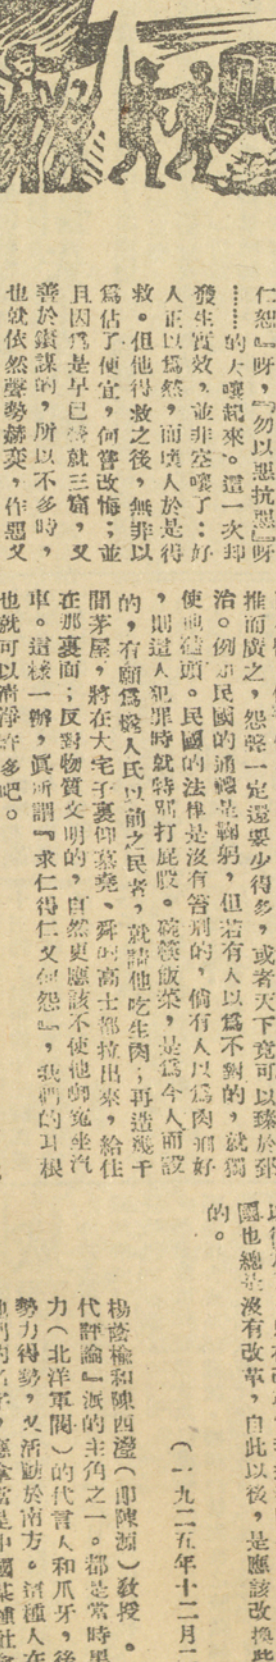 仁恕』呀,『勿以惡抗惡』呀
……的大嚷起來。這一次却
發生實效,並非空嚷了:好
人正以爲然,而壞人於是得
救。但他得救之後,無非以
爲佔了便宜,何嘗改悔;並
且因爲是早已營就三窟,又
善於鑽謀的,所以不多時,
也就依然聲勢赫奕,作惡又
推而廣之,怨聲一定還要少得多,或者天下竟可以臻於郅
治。例如民國的通禮是鞠躬,但若有人以爲不對的,就獨
使他磕頭。民國的法律是沒有笞刑的,倘有人以爲肉刑好
,則這人犯罪時就特別打屁股。碗筷飯菜,是爲今人而設
的,有願爲燧人氏以前之民者,就請他吃生肉;再造幾千
間茅屋,將在大宅子裏仰慕堯、舜的高士都拉出來,給住
在那裏面;反對物質文明的,自然更應該不使他啣冤坐汽
車。這樣一辦,眞所謂『求仁得仁又何怨』,我們的耳根
也就可以清淨許多吧。
也總是沒有改革,自此以後,是應該改換些
的。
(一九二五年十二月
楊蔭榆和陳西瀅(即陳源)教授。
代評論』派的主角之一。都是當時
力(北洋軍閥)的代言人和爪牙,後
勢力得勢,又活動於南方。這種人在